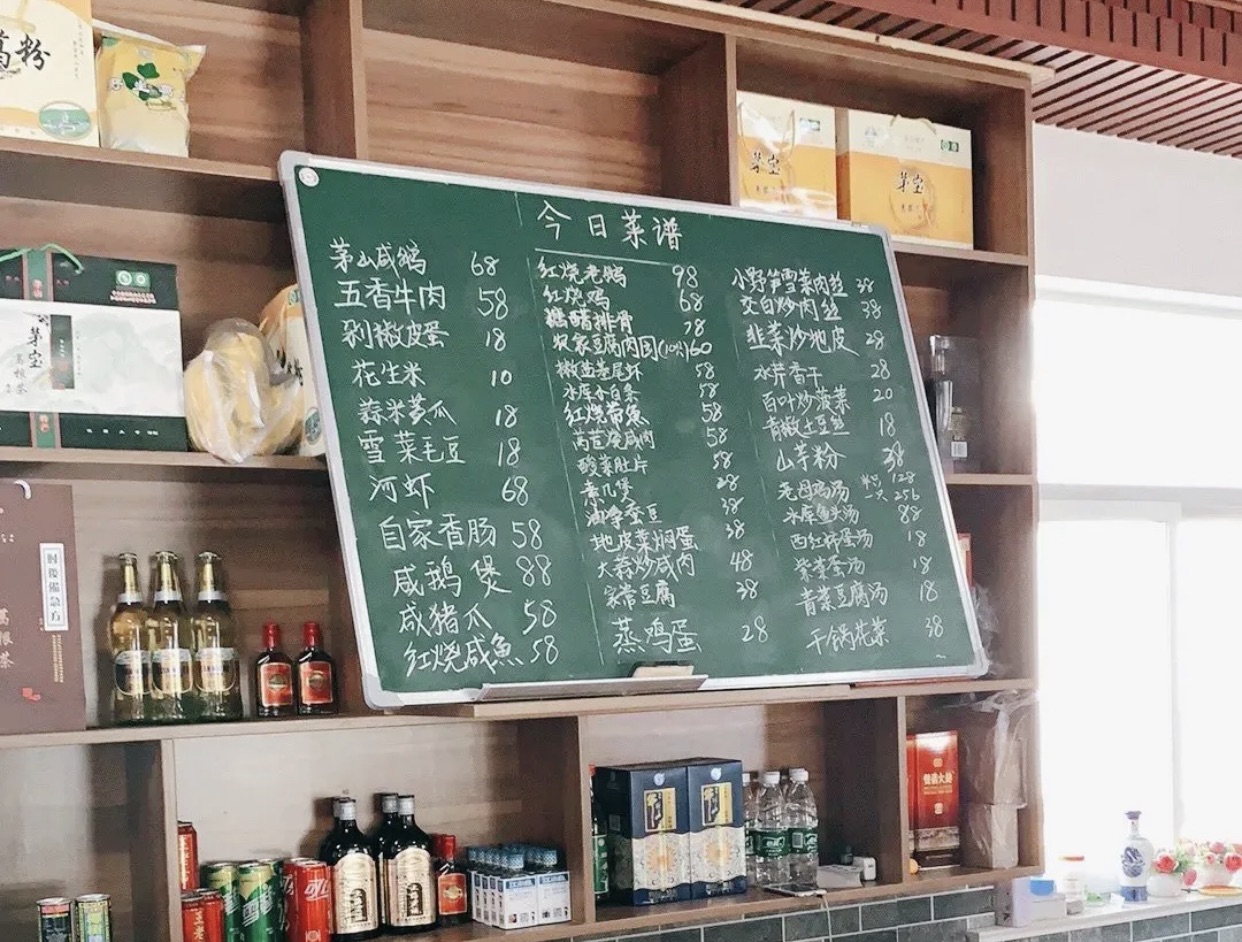 今日菜谱
茅山咸鹅 68
五香牛肉 58
剁椒皮蛋 18
花生米 10
蒜米黄瓜 18
雪菜毛豆 18
河虾 68
自家香肠 58
咸鹅煲 88
咸猪爪 58
红烧咸鱼 58
红烧老鹅 98
红烧鸡 68
糖醋排骨 78
农家豆腐肉园(10只)60
椒盐基尾虾 58
水库小白条 58
红烧昂鱼 58
莴苣烧咸肉 58
酸菜肚片 58
素几煲 28
油争蚕豆 38
地皮菜焖蛋 38
大蒜炒咸肉 48
家常豆腐 38
蒸鸡蛋 28
小野笋雪菜肉丝 38
交白炒肉丝 38
韭菜炒地皮 28
水芹香干 28
百叶炒菠菜 20
青椒土豆丝 18
山芋粉 38
老母鸡汤 半只 128
一只 256
水库鱼头汤 88
西红柿蛋汤 18
紫菜蛋汤 18
青菜豆腐汤 18
干锅花菜 38
葛粉
茅宝
茅宝
茅宝
葛根茶
肘后备急方
葛根茶